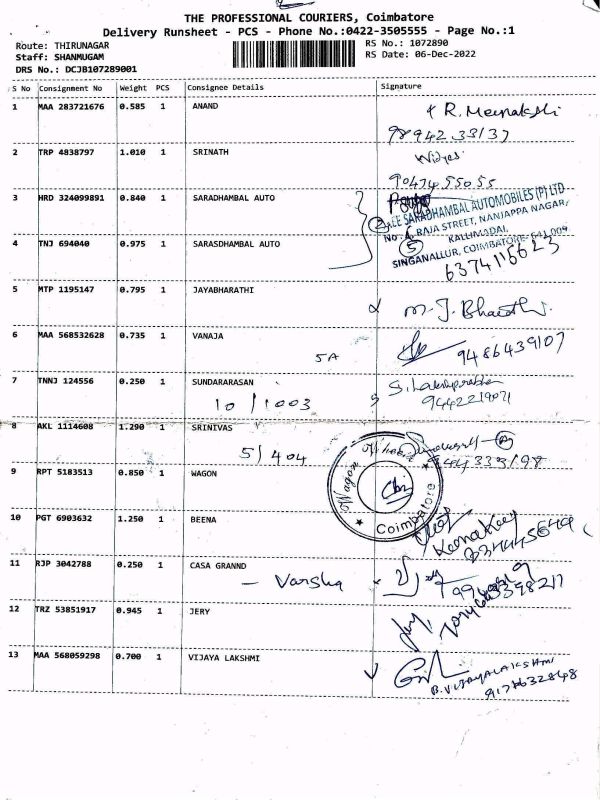 THE PROFESSIONAL COURIERS, Coimbatore
Delivery Runsheet - PCS - Phone No.:0422-3505555 - Page No.:1
Route: THIRUNAGAR
Staff: SHANMUGAM
DRS No.: DCJB107289001
RS No.: 1072890
RS Date: 06-Dec-2022
S No Consignment No Weight PCS Consignee Details Signature
1 MAA 283721676 0.585 1 ANAND R. Meenakshi
98942 33137
2 TRP 4838797 1.010 1 SRINATH Widya
90474 55055
3 HRD 324099891 0.840 1 SARADHAMBAL AUTO
SARADHAMBAL AUTOMOBILES (P) LTD
RAJA STREET, NANJAPPA NAGAR,
KALLIMADAI,
SINGANALLUR, COIMBATORE-641 009
4 TNJ 694040 0.975 1 SARASDHAMBAL AUTO
6374115623
5 MTP 1195147 0.795 1 JAYABHARATHI M. J. Bharathi
6 MAA 568532628 0.735 1 VANAJA 9486439107
5A
7 TNNJ 124556 0.250 1 SUNDARARASAN
10/1003
8 AKL 1114608 1.290 1 SRINIVAS
5/404
9 RPT 5183513 0.850 1 WAGON
Wagon Coimbatore
10 PGT 6903632 1.250 1 BEENA
11 RJP 3042788 0.250 1 CASA GRANND
- Varsha
12 TRZ 53851917 0.945 1 JERY Jery
13 MAA 568059298 0.700 1 VIJAYA LAKSHMI
B. VIJAYALAKSHMI